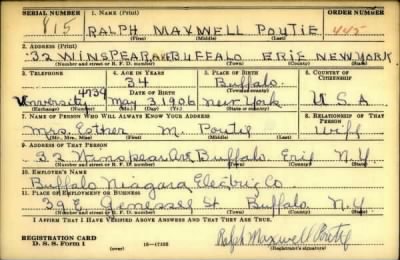 SERIAL NUMBER 1. NAME (Print) ORDER NUMBER
815 RALPH MAXWELL POUTIE 445
(First) (Middle) (Last)
2. ADDRESS (Print)
32 WINSPEAR AVE BUFFALO ERIE NEW YORK
(Number and street or R. F. D. number) (Town) (County) (State)
3. TELEPHONE 4. AGE IN YEARS 5. PLACE OF BIRTH 6. COUNTRY OF CITIZENSHIP
34 Buffalo
University 4739 DATE OF BIRTH (Town or county)
May 3 1906 New York U S A
(Exchange) (Number) (Mo.) (Day) (Yr.) (State or country)
7. NAME OF PERSON WHO WILL ALWAYS KNOW YOUR ADDRESS 8. RELATIONSHIP OF THAT PERSON
Mrs. Esther M. Poutie Wife
(Mr., Mrs., Miss) (First) (Middle) (Last)
9. ADDRESS OF THAT PERSON
32 Winspear Ave Buffalo Erie N.Y.
(Number and street or R. F. D. number) (Town) (County) (State)
10. EMPLOYER'S NAME
Buffalo Niagara Electric Co
11. PLACE OF EMPLOYMENT OR BUSINESS
39 E Genessee St Buffalo N.Y
(Number and street or R. F. D. number) (Town) (County) (State)
I AFFIRM THAT I HAVE VERIFIED ABOVE ANSWERS AND THAT THEY ARE TRUE.
REGISTRATION CARD Ralph Maxwell Poutie
D. S. S. Form 1 (over) 16—17105 (Registrant's signature)